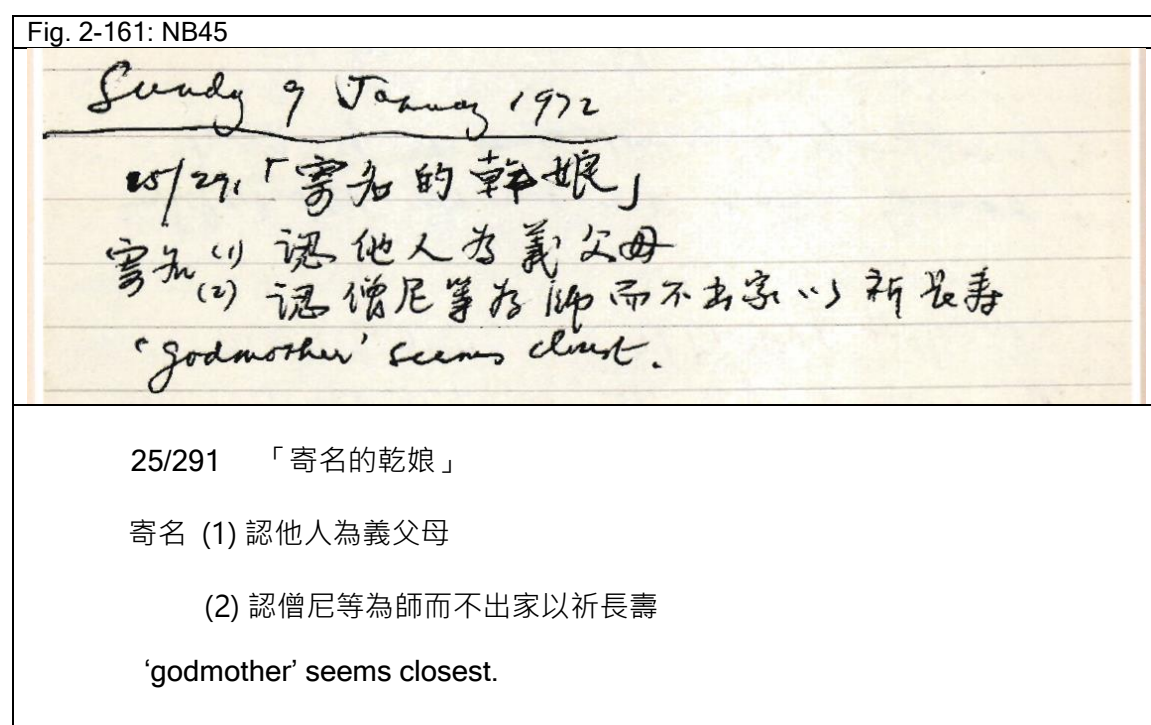 Fig. 2-161: NB45
Sunday 9 January 1972
25/291「寄名的乾娘」
寄名 (1) 認他人為義父母
(2) 認僧尼等為師而不出家以祈長壽
‘godmother’ seems closest.
25/291 「寄名的乾娘」
寄名 (1) 認他人為義父母
(2) 認僧尼等為師而不出家以祈長壽
‘godmother’ seems closest.